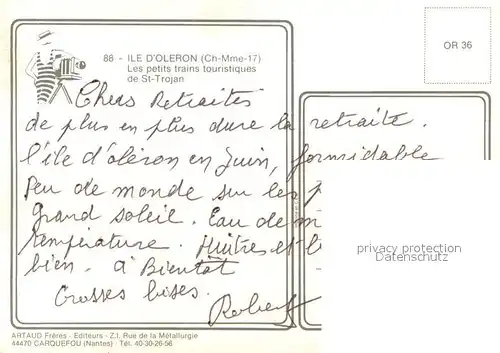 OR 36
88 - ILE D'OLERON (Ch-Mme-17)
Les petits trains touristiques
de St-Trojan
Chers Retraités
de plus en plus dure la retraite.
l'île d'oléron en Juin, formidable
Peu de monde sur les
Grand soleil. Eau de
température. Huîtres et
bien. à Bientôt
Grosses bises.
Robert
privacy protection
Datenschutz
ARTAUD Frères - Editeurs - Z.I. Rue de la Métallurgie
44470 CARQUEFOU (Nantes) - Tél. 40-30-26-56